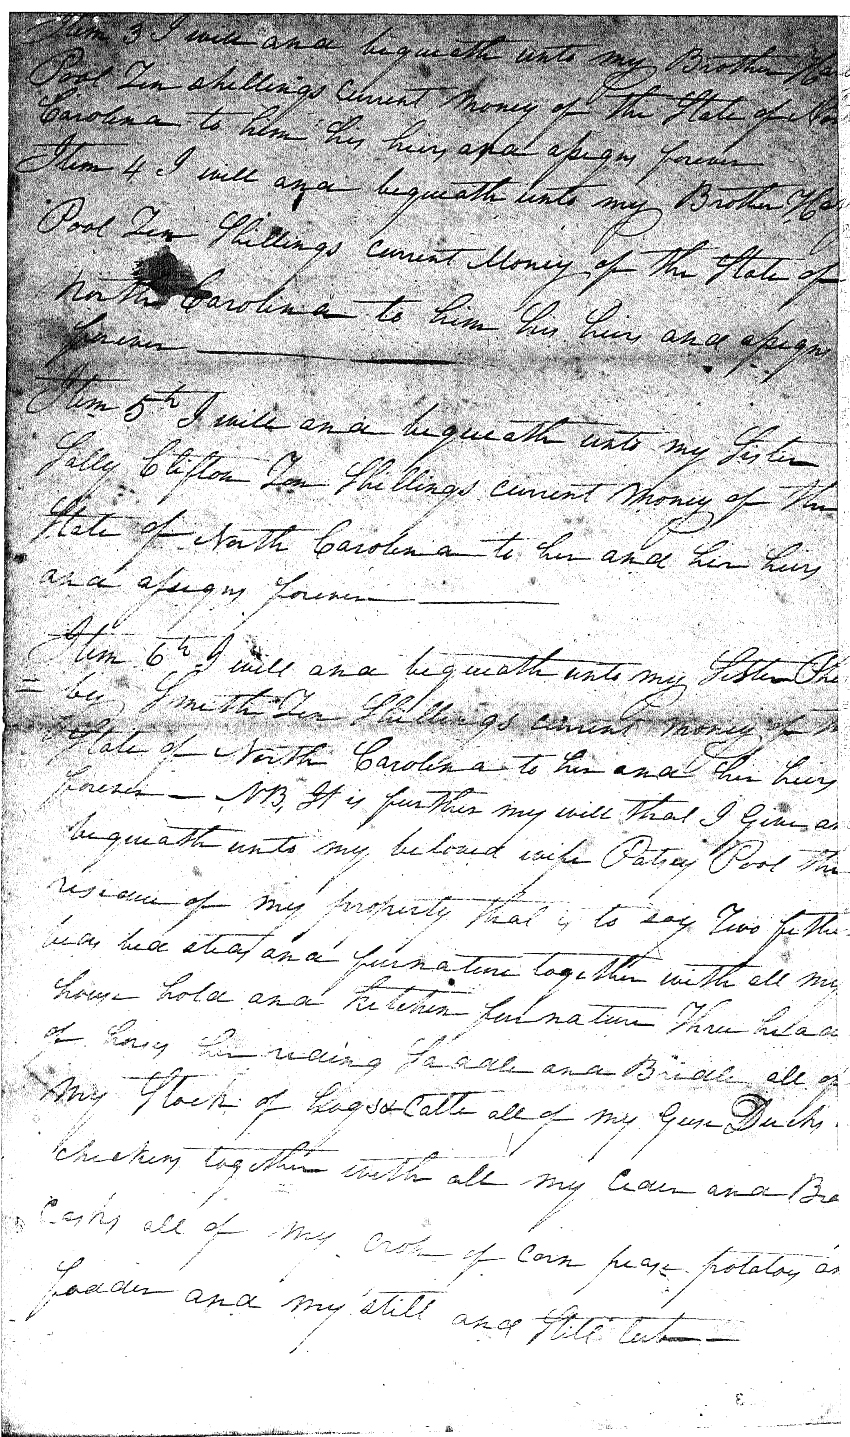 Item 3 I will and bequeath unto my Brother
Pool Ten shillings current money of the State of
Carolina to him his heirs and assigns forever
Item 4 I will and bequeath unto my Brother
Pool Ten Shillings current Money of the State of
North Carolina to him his heirs and assigns
forever
Item 5th I will and bequeath unto my Sister
Sally Clifton Ten Shillings current money of the
State of North Carolina to her and her heirs
and assigns forever
Item 6th I will and bequeath unto my Sister Phe
= by Smith Ten Shillings current money of
State of North Carolina to her and her heirs
forever — NB, It is further my will that I Give an
bequeath unto my beloved wife Patsey Pool the
residue of my property that is to say Two fethe
beds bed steds and furnature together with all my
house hold and kitchen furnature Three head
of horses her riding Saddle and Bridle all of
my Stock of hogs & Cattle all of my Geese Ducks
chickens together with all my Cider and Bra
Casks all of my crop of corn pease potatoes an
fodder and my still and Still tub
3